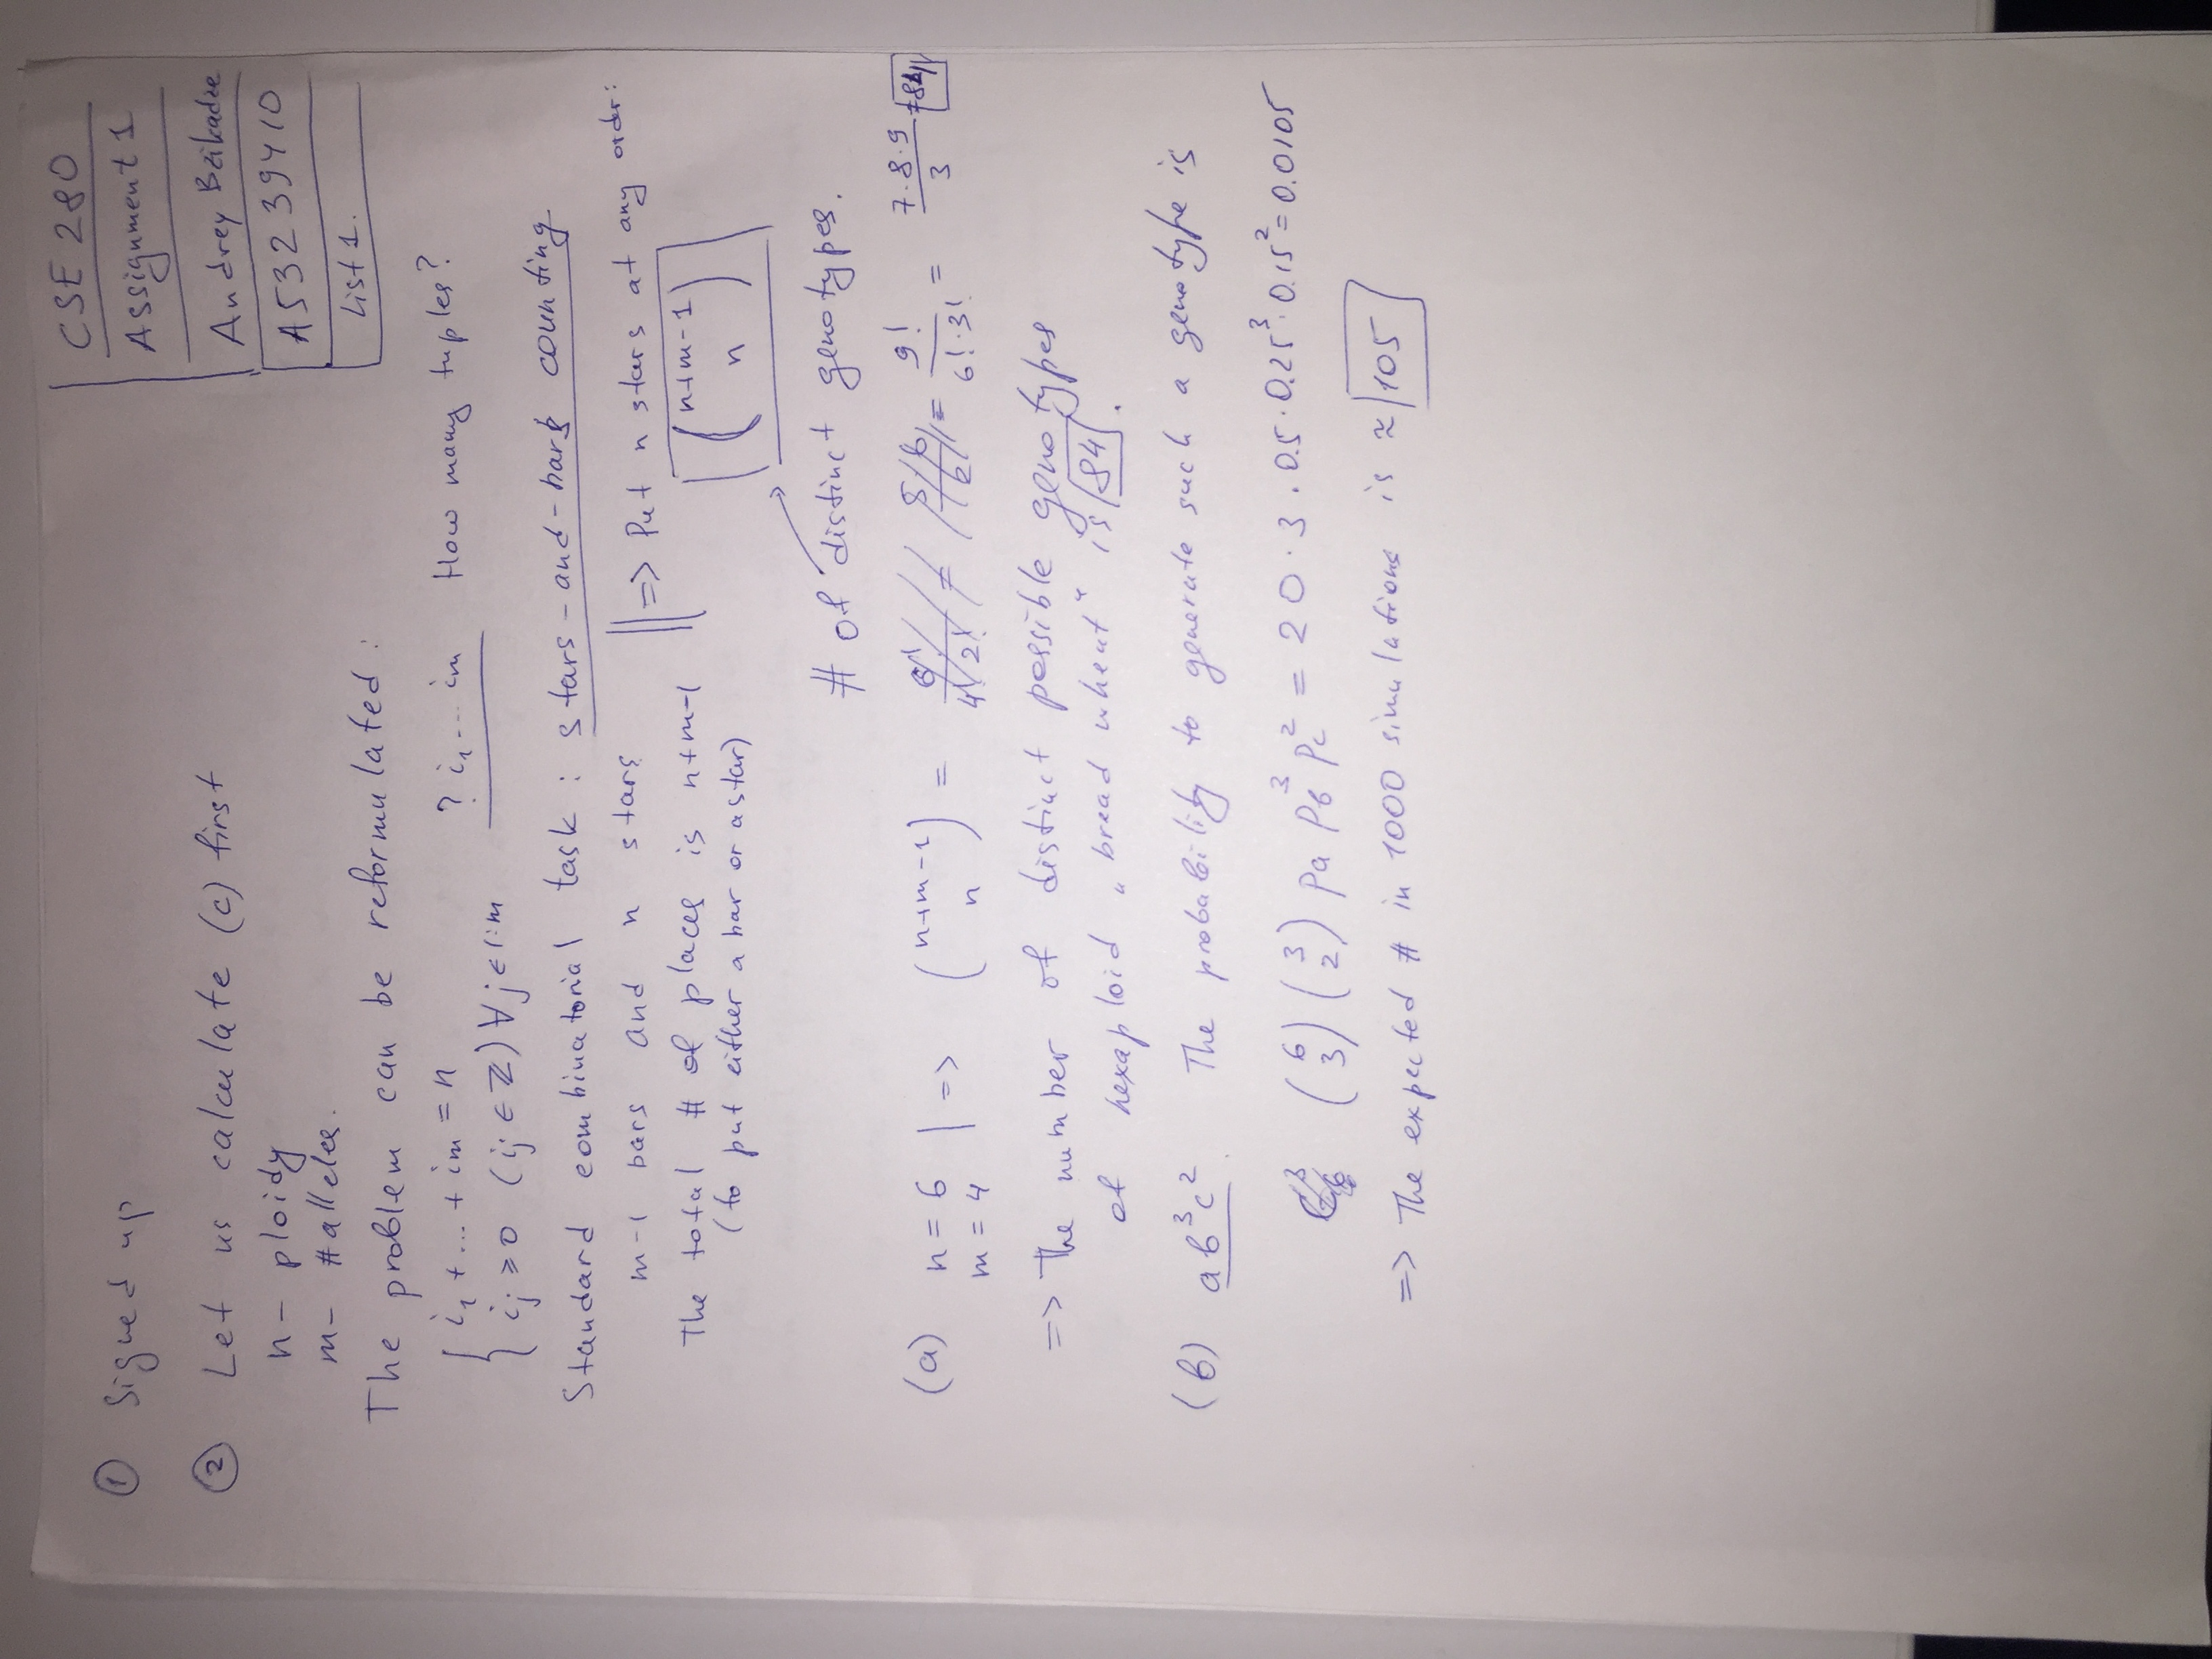 CSE 280
Assignment 1
Andrey Bzikadze
A53239410
List 1.
① Signed up
② Let us calculate (c) first
n – ploidy
m – # alleles.
The problem can be reformulated:
{ i₁ + ... + im = n
ij ⩾ 0 (ij ∈ ℤ) ∀ j ∈ 1:m
? i₁ ... im How many tuples?
Standard combinatorial task: stars-and-bars counting
m-1 bars and n stars
The total # of places is n+m-1
(to put either a bar or a star)
=> Put n stars at any order:
(n+m-1
n)
# of distinct genotypes.
(a) n = 6
m = 4 | => (n+m-1 n) = = 9!/(6!·3!) = 7·8·9/3 = 84
=> The number of distinct possible genotypes
of hexaploid „bread wheat“ is 84.
(b) ab³c². The probability to generate such a genotype is
(6 3) (3 2) pa pb³ pc² = 20 · 3 · 0.5 · 0.25³ · 0.15² = 0.0105
=> The expected # in 1000 simulations is ≈ 105